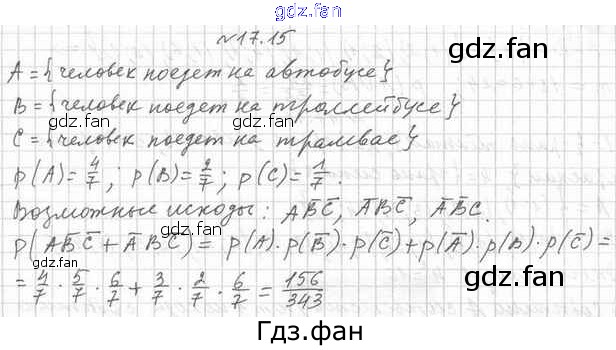 gdz.fan
№17.15
gdz.fan
A = {человек поедет на автобусе}
B = {человек поедет на троллейбусе}
gdz.fan
C = {человек поедет на трамвае}
p(A)=4/7; p(B)=2/7; p(C)=1/7.
Возможные исходы: AB̅C̅, A̅BC̅, A̅B̅C.
p(AB̅C̅ + A̅BC̅) = p(A)·p(B̅)·p(C̅)+p(A̅)·p(B)·p(C̅)=
gdz.fan
gdz.fan
= 4/7 · 5/7 · 6/7 + 3/7 · 2/7 · 6/7 = 156/343
gdz.fan
Гдз.фан